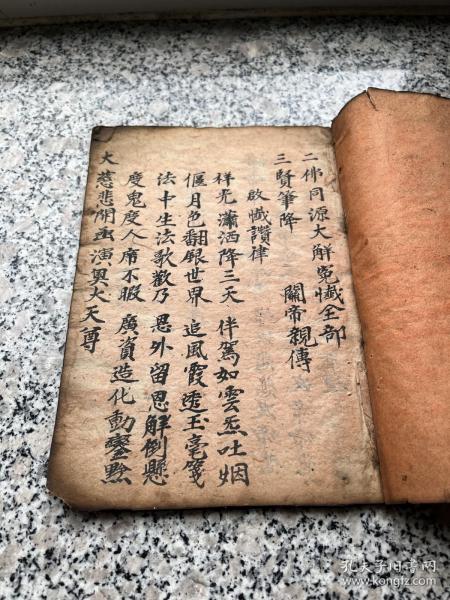 二佛同源大解冤懺全部
三賢筆降 關帝親傳
啟懺讚律
祥光瀟洒降三天 伴駕如雲炁吐烟
偃月色翻銀世界 追風霞透玉毫箋
法中生法歌歡乃 恩外留恩解倒懸
度鬼度人席不暇 廣資造化動鑾
大慈悲開函演興大天尊
孔夫子旧书网
www.kongfz.com